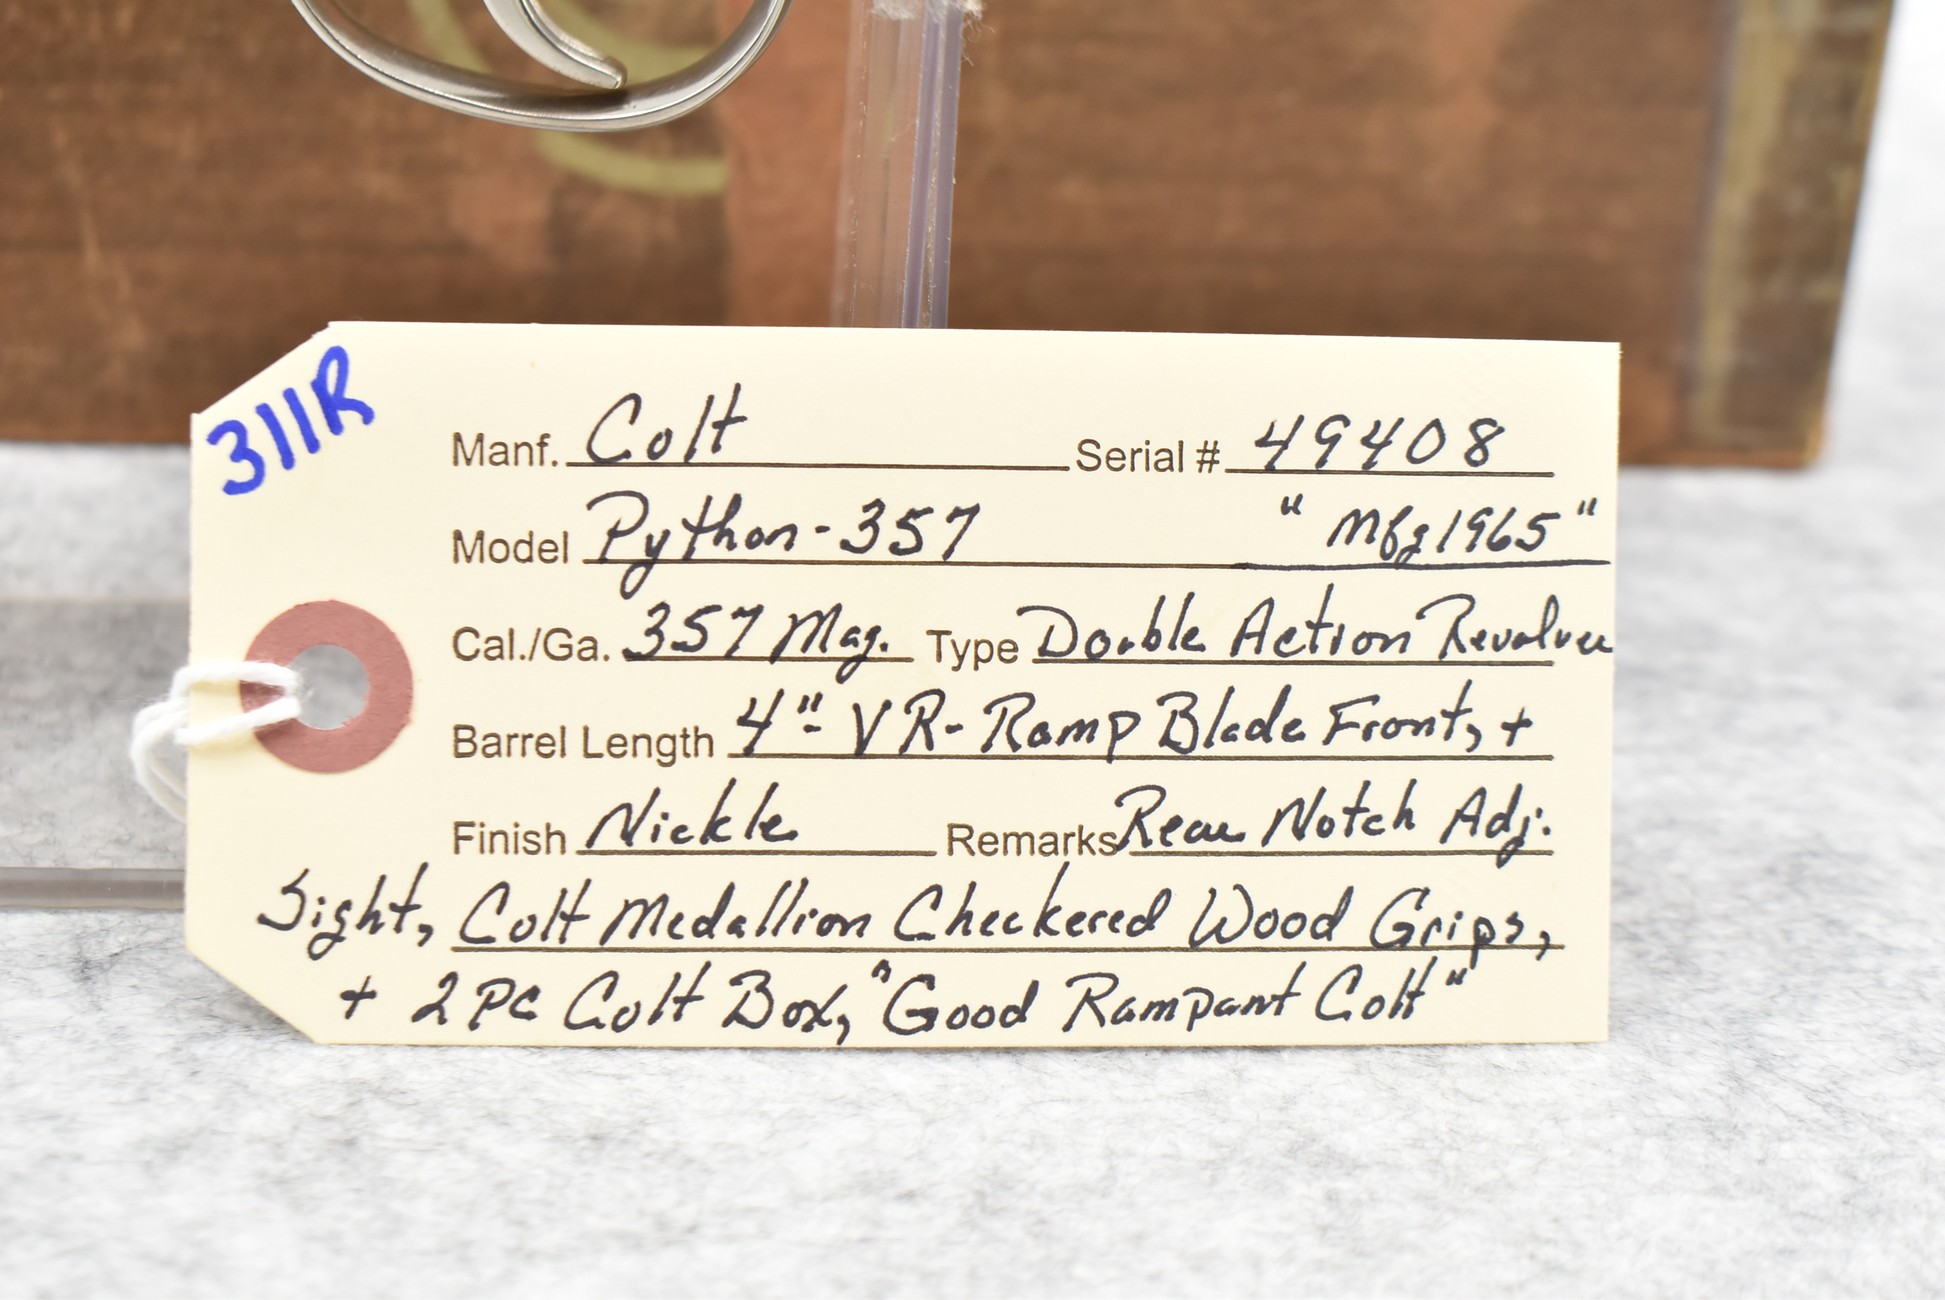 311R
Manf. Colt Serial # 49408
Model Python-357 "Mfg 1965"
Cal./Ga. 357 Mag. Type Double Action Revolver
Barrel Length 4"- VR-Ramp Blade Front, +
Finish Nickle Remarks Rear Notch Adj.
Sight, Colt Medallion Checkered Wood Grips,
+ 2 PC Colt Box, "Good Rampant Colt"